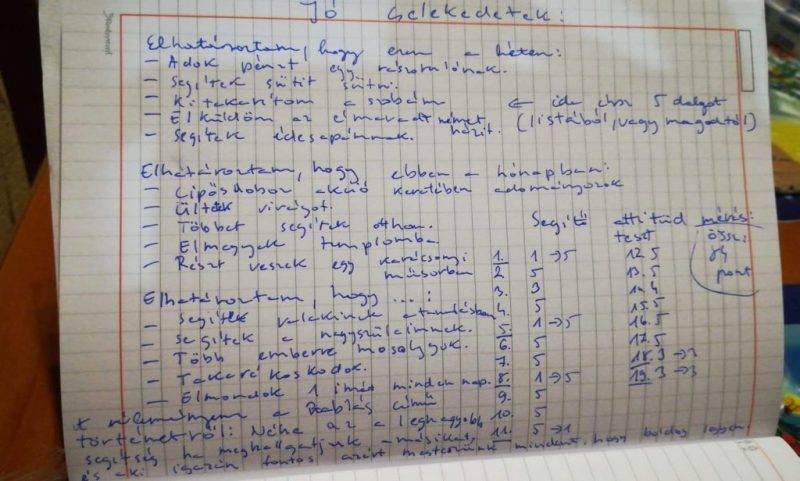 Jó cselekedetek:
Elhatároztam, hogy ezen a héten:
- Adok pénzt egy rászorulónak.
- Segítek sütit sütni.
- Kitakarítom a szobám
- Elküldöm az elmaradt német házit.
- Segítek édesapámnak.
← ide írsz 5 dolgot
(listából, vagy magadtól)
Elhatároztam, hogy ebben a hónapban:
- Cipősdoboz akció keretében adományozok
- Ültetek virágot.
- Többet segítek otthon.
- Elmegyek templomba
- Részt veszek egy karácsonyi műsorban
Elhatároztam, hogy ...:
- Segítek valakinek a tanulásban
- Segítek a nagyszüleimnek.
- Több emberre mosolygok.
- Takarékoskodok.
- Elmondok 1 imát minden nap.
Segítő attitüd mérés:
teszt össz:
84
pont
1. 1 → 5
2. 5
3. 3
4. 5
5. 1 → 5
6. 5
7. 5
8. 1 → 5
9. 5
10. 5
11. 5 → 1
12. 5
13. 5
14. 4
15. 5
16. 5
17. 5
18. 3 → 3
19. 3 → 3
a című
történetről: Néha az a legnagyobb
segítség ha meghallgatjuk a másikat,
és aki igazán fontos azért mindent, hogy boldog legyen.